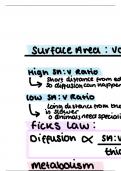 Surface Area : Vo
High SA:V Ratio
↳ Short distance from ed
so diffusion can happen
Low SA:V Ratio
↳ Long distance from the
is slower
○ animals need specialis
Ficks Law:
Diffusion ∝ SA:V
thi
metabolism